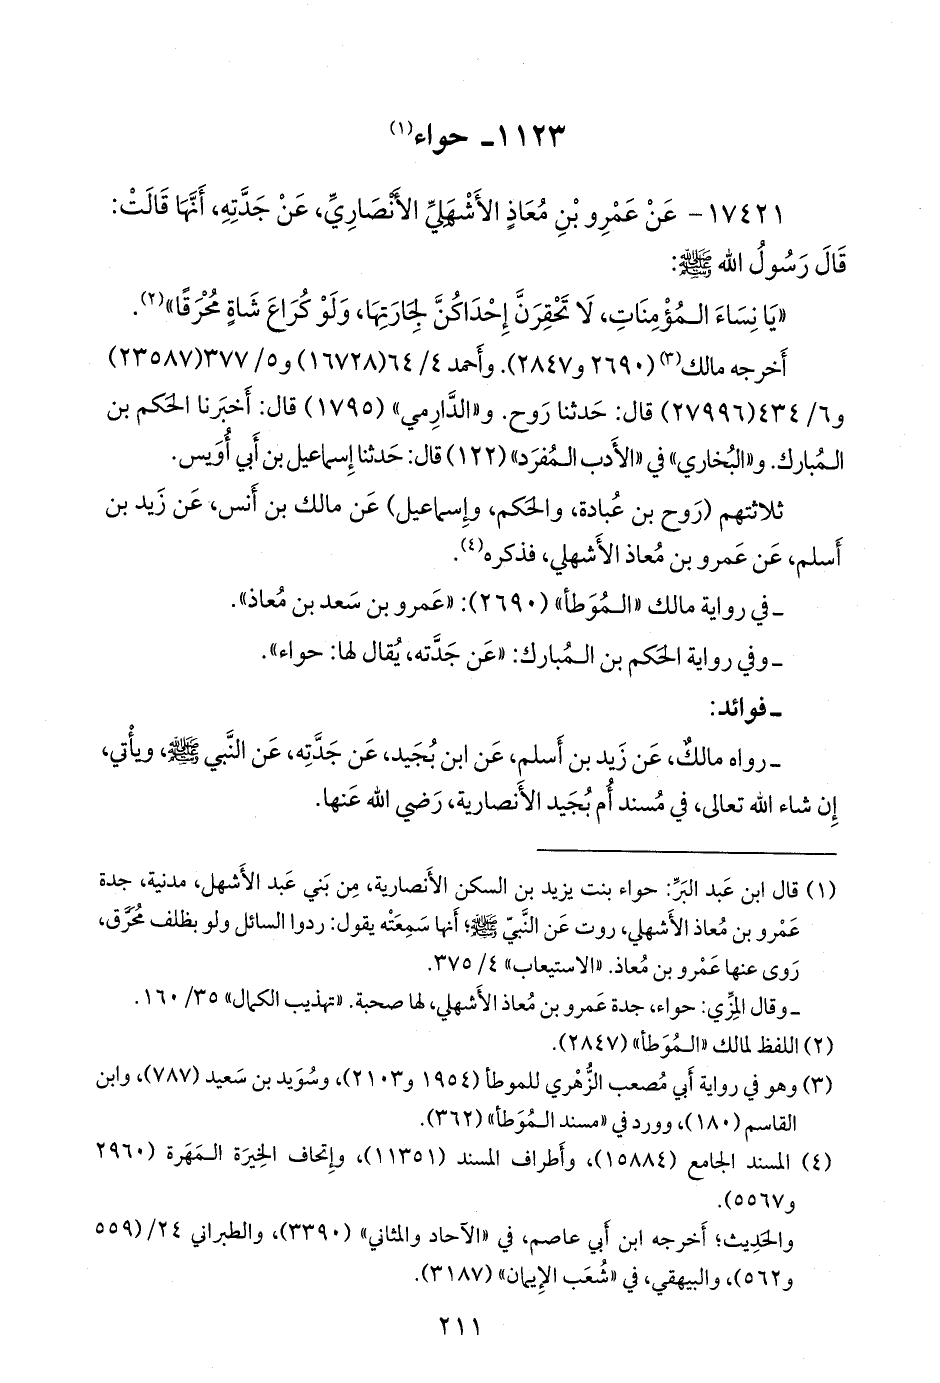 ١١٢٣ـ حواء(١)
١٧٤٢١- عَنْ عَمْرِو بْنِ مُعَاذٍ الأَشْهَلِيِّ الأَنْصَارِيِّ، عَنْ جَدَّتِهِ، أَنَّهَا قَالَتْ:
قَالَ رَسُولُ الله ﷺ:
«يَا نِسَاءَ الـمُؤْمِنَاتِ، لَا تَحْقِرَنَّ إِحْدَاكُنَّ لِجَارَتِهَا، وَلَوْ كُرَاعَ شَاةٍ مُحْرَقًا»(٢).
أَخرجه مالك(٣) (٢٦٩٠ و٢٨٤٧). وأَحمد ٤/ ٦٤(١٦٧٢٨) و٥/ ٣٧٧(٢٣٥٨٧)
و٦/ ٤٣٤(٢٧٩٩٦) قال: حَدثنا رَوح. و«الدَّارِمي» (١٧٩٥) قال: أَخبَرنا الحَكم بن
المُبارك. و«البُخاري» في «الأَدب الـمُفرَد» (١٢٢) قال: حَدثنا إِسماعيل بن أَبي أُوَيس.
ثلاثتهم (رَوح بن عُبادة، والحَكم، وإِسماعيل) عَن مالك بن أَنس، عَن زَيد بن
أَسلم، عَن عَمرو بن مُعاذ الأَشهلي، فذكره(٤).
ـ في رواية مالك «الـمُوَطأ» (٢٦٩٠): «عَمرو بن سَعد بن مُعاذ».
ـ وفي رواية الحَكم بن الـمُبارك: «عَن جَدَّته، يُقال لها: حواء».
ـ فوائد:
ـ رواه مالكٌ، عَن زَيد بن أَسلم، عَن ابن بُجَيد، عَن جَدَّتِه، عَن النَّبي ﷺ، ويأْتي،
إِن شاء الله تعالى، في مُسند أُم بُجَيد الأَنصارية، رَضي الله عَنها.
(١) قال ابن عَبد البَرِّ: حواء بنت يزيد بن السكن الأَنصارية، مِن بَني عَبد الأَشهل، مدنية، جدة
عَمْرو بن مُعاذ الأَشهلي، روت عَن النَّبيّ ﷺ؛ أَنها سَمِعَتْه يقول: ردوا السائل ولو بظلف مُحَرَّق،
رَوى عنها عَمْرو بن مُعاذ. «الاستيعاب» ٤/ ٣٧٥.
ـ وقال المِزِّي: حواء، جدة عَمرو بن مُعاذ الأَشهلي، لها صحبة. «تهذيب الكمال» ٣٥/ ١٦٠.
(٢) اللفظ لمالك «الـمُوَطأ» (٢٨٤٧).
(٣) وهو في رواية أَبي مُصعب الزُّهْري للموطأ (١٩٥٤ و٢١٠٣)، وسُوَيد بن سَعيد (٧٨٧)، وابن
القاسم (١٨٠)، وورد في «مسند الـمُوَطأ» (٣٦٢).
(٤) المسند الجامع (١٥٨٨٤)، وأَطراف المسند (١١٣٥١)، وإِتحاف الخِيرَة الـمَهَرة (٢٩٦٠
و٥٥٦٧).
والحَدِيث؛ أَخرجه ابن أَبي عاصم، في «الآحاد والمثاني» (٣٣٩٠)، والطبراني ٢٤/ (٥٥٩
و٥٦٢)، والبيهقي، في «شُعَب الإِيمان» (٣١٨٧).
٢١١